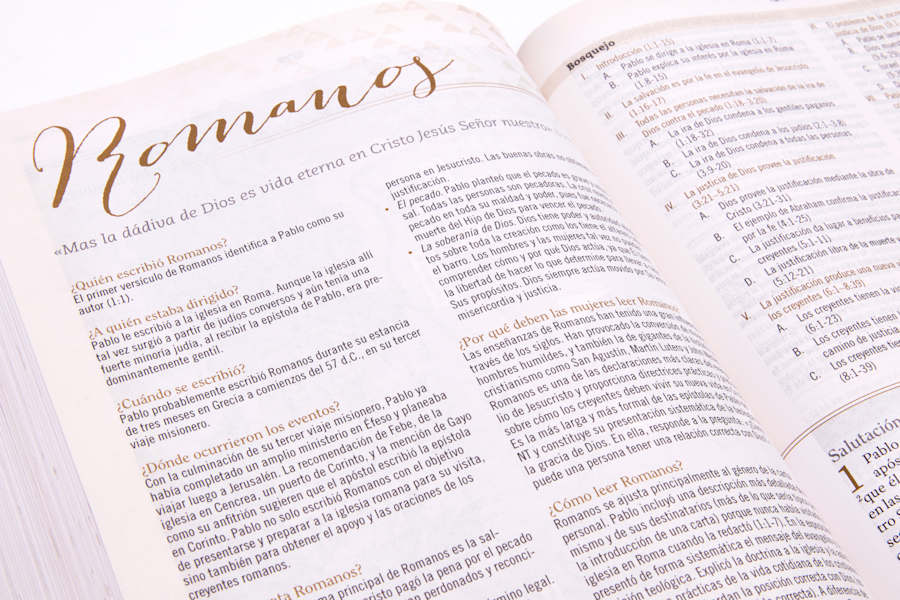 Romanos
«Mas la dádiva de Dios es vida eterna en Cristo Jesús Señor nuestro»
¿Quién escribió Romanos?
El primer versículo de Romanos identifica a Pablo como su
autor (1:1).
¿A quién estaba dirigido?
Pablo le escribió a la iglesia en Roma. Aunque la iglesia allí
tal vez surgió a partir de judíos conversos y aún tenía una
fuerte minoría judía, al recibir la epístola de Pablo, era pre-
dominantemente gentil.
¿Cuándo se escribió?
Pablo probablemente escribió Romanos durante su estancia
de tres meses en Grecia a comienzos del 57 d.C., en su tercer
viaje misionero.
¿Dónde ocurrieron los eventos?
Con la culminación de su tercer viaje misionero, Pablo ya
había completado un amplio ministerio en Éfeso y planeaba
viajar luego a Jerusalén. La recomendación de Febe, de la
iglesia en Cencrea, un puerto de Corinto, y la mención de Gayo
como su anfitrión sugieren que el apóstol escribió la epístola
en Corinto. Pablo no solo escribió Romanos con el objetivo
de presentarse y preparar a la iglesia romana para su visita,
sino también para obtener el apoyo y las oraciones de los
creyentes romanos.
Romanos?
ma principal de Romanos es la sal-
cristo pagó la pena por el pecado
an perdonados y reconci-
término legal.
persona en Jesucristo. Las buenas obras no
justificación.
• El pecado. Pablo planteó que el pecado es
sal. Todas las personas son pecadoras. La
pecado en toda su maldad y poder, pues
muerte del Hijo de Dios para vencer el
• La soberanía de Dios. Dios tiene poder y
tos sobre toda la creación como los tiene el
el barro. Los hombres y las mujeres tal vez no
comprender cómo y por qué Dios actúa, ya
la libertad de hacer lo que determine para llevar
Sus propósitos. Dios siempre actúa movido por
misericordia y justicia.
¿Por qué deben las mujeres leer Romanos?
Las enseñanzas de Romanos han tenido una gran
través de los siglos. Han provocado la conversión de
hombres humildes, y también la de gigantes de la
cristianismo como San Agustín, Martín Lutero y
Romanos es una de las declaraciones más claras
vio de Jesucristo y proporciona directrices prácticas
sobre cómo los creyentes deben vivir su nueva vida
Es la más larga y más formal de las epístolas de Pablo
NT y constituye su presentación sistemática de la
la gracia de Dios. En ella, responde a la pregunta:
puede una persona tener una relación correcta con Dios
¿Cómo leer Romanos?
Romanos se ajusta principalmente al género de la carta
personal. Pablo incluyó una descripción más detallada
mismo y de sus destinatarios (más de lo que sería
la introducción de una carta) porque nunca había
iglesia en Roma cuando la redactó (1:1-7). En la
presentó de forma sistemática el mensaje del evangelio
posición teológica. Explicó la doctrina a la iglesia y
prácticas de la vida cotidiana de los
la posición correcta con Dios
correcta). A diferencia de
Bosquejo
I. Introducción (1:1-15)
A. Pablo se dirige a la iglesia en Roma (1:1-7)
B. Pablo explica su interés por la iglesia en Roma
(1:8-15)
II. La salvación es por la fe en el evangelio de Jesucristo
(1:16-17)
III. Todas las personas necesitan la salvación de la ira de
Dios contra el pecado (1:18–3:20)
A. La ira de Dios condena a los gentiles paganos
(1:18-32)
B. La ira de Dios condena a los judíos (2:1–3:8)
C. La ira de Dios condena a todas las personas
(3:9-20)
IV. La justicia de Dios provee la justificación
(3:21–5:21)
A. Dios provee la justificación mediante la obra de
Cristo (3:21-31)
B. El ejemplo de Abraham confirma la justificación
por la fe (4:1-25)
C. La justificación da lugar a beneficios para
creyentes (5:1-11)
D. La justificación libra de la muerte
(5:12-21)
V. La justificación produce una nueva
los creyentes (6:1–8:39)
A. Los creyentes tienen la
(6:1-23)
B. Los creyentes tienen
camino de justicia
C. Los creyentes tienen
(8:1-39)
El problema de la
Salutación
1 Pablo
após
²que él
en las
tro S
se